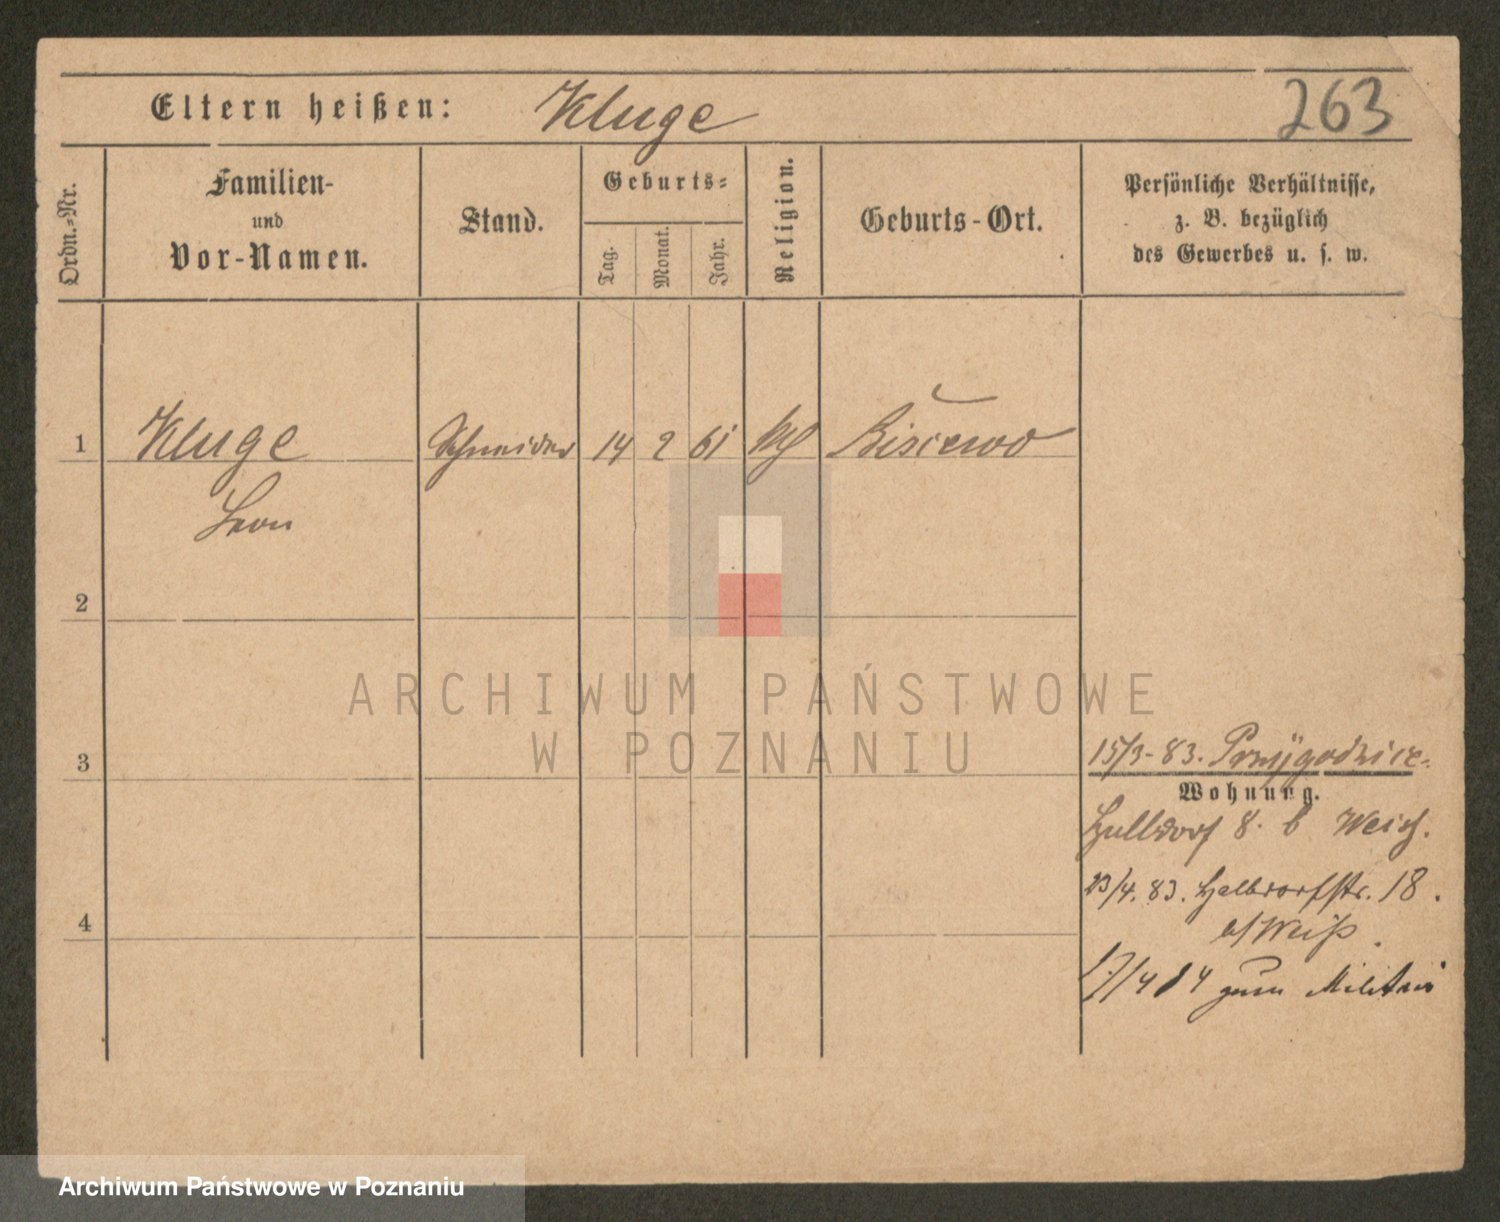 Eltern heißen: Kluge 263
Ordn.-Nr.
Familien-
und
Vor-Namen.
Stand.
Geburts-
Tag.
Monat.
Jahr.
Religion.
Geburts-Ort.
Persönliche Verhältnisse,
z. B. bezüglich
des Gewerbes u. s. w.
1 Kluge Schneider 14 2 61 kth
Leon
2
ARCHIWUM PAŃSTWOWE
W POZNANIU
3
15/3-83.
Wohnung.
Halbdorf 8. b
4
23/4.83. Halbdorfstr. 18.
b/Weiß.
17/4 84 zum Militair
Archiwum Państwowe w Poznaniu